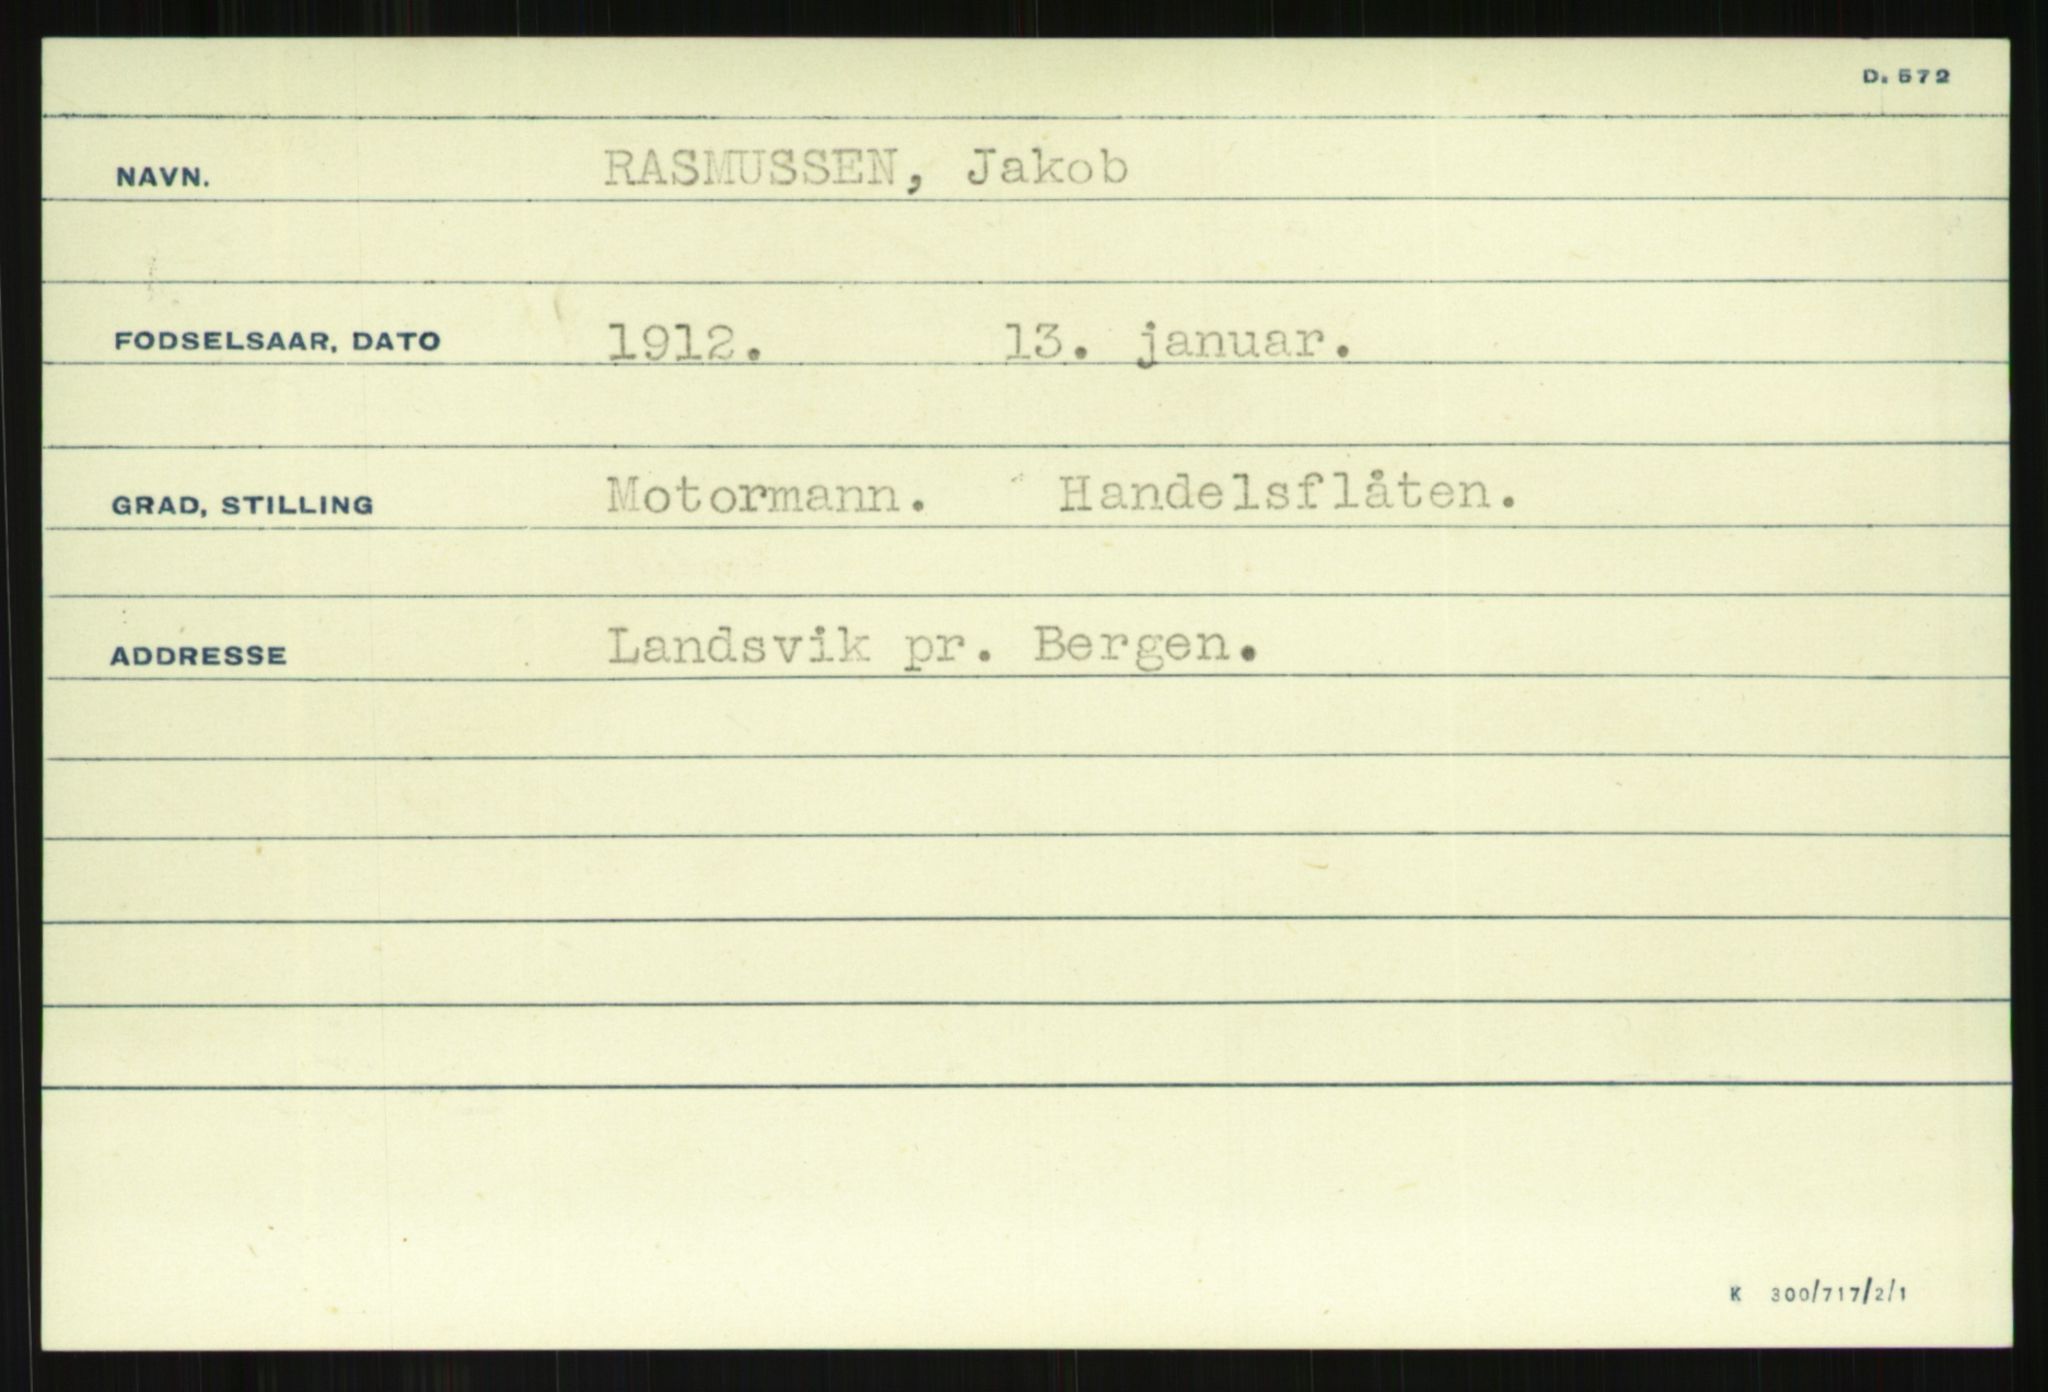 D. 572
NAVN. RASMUSSEN, Jakob
FODSELSAAR, DATO 1912. 13. januar.
GRAD, STILLING Motormann. Handelsflåten.
ADDRESSE Landsvik pr. Bergen.
K 300/717/2/1